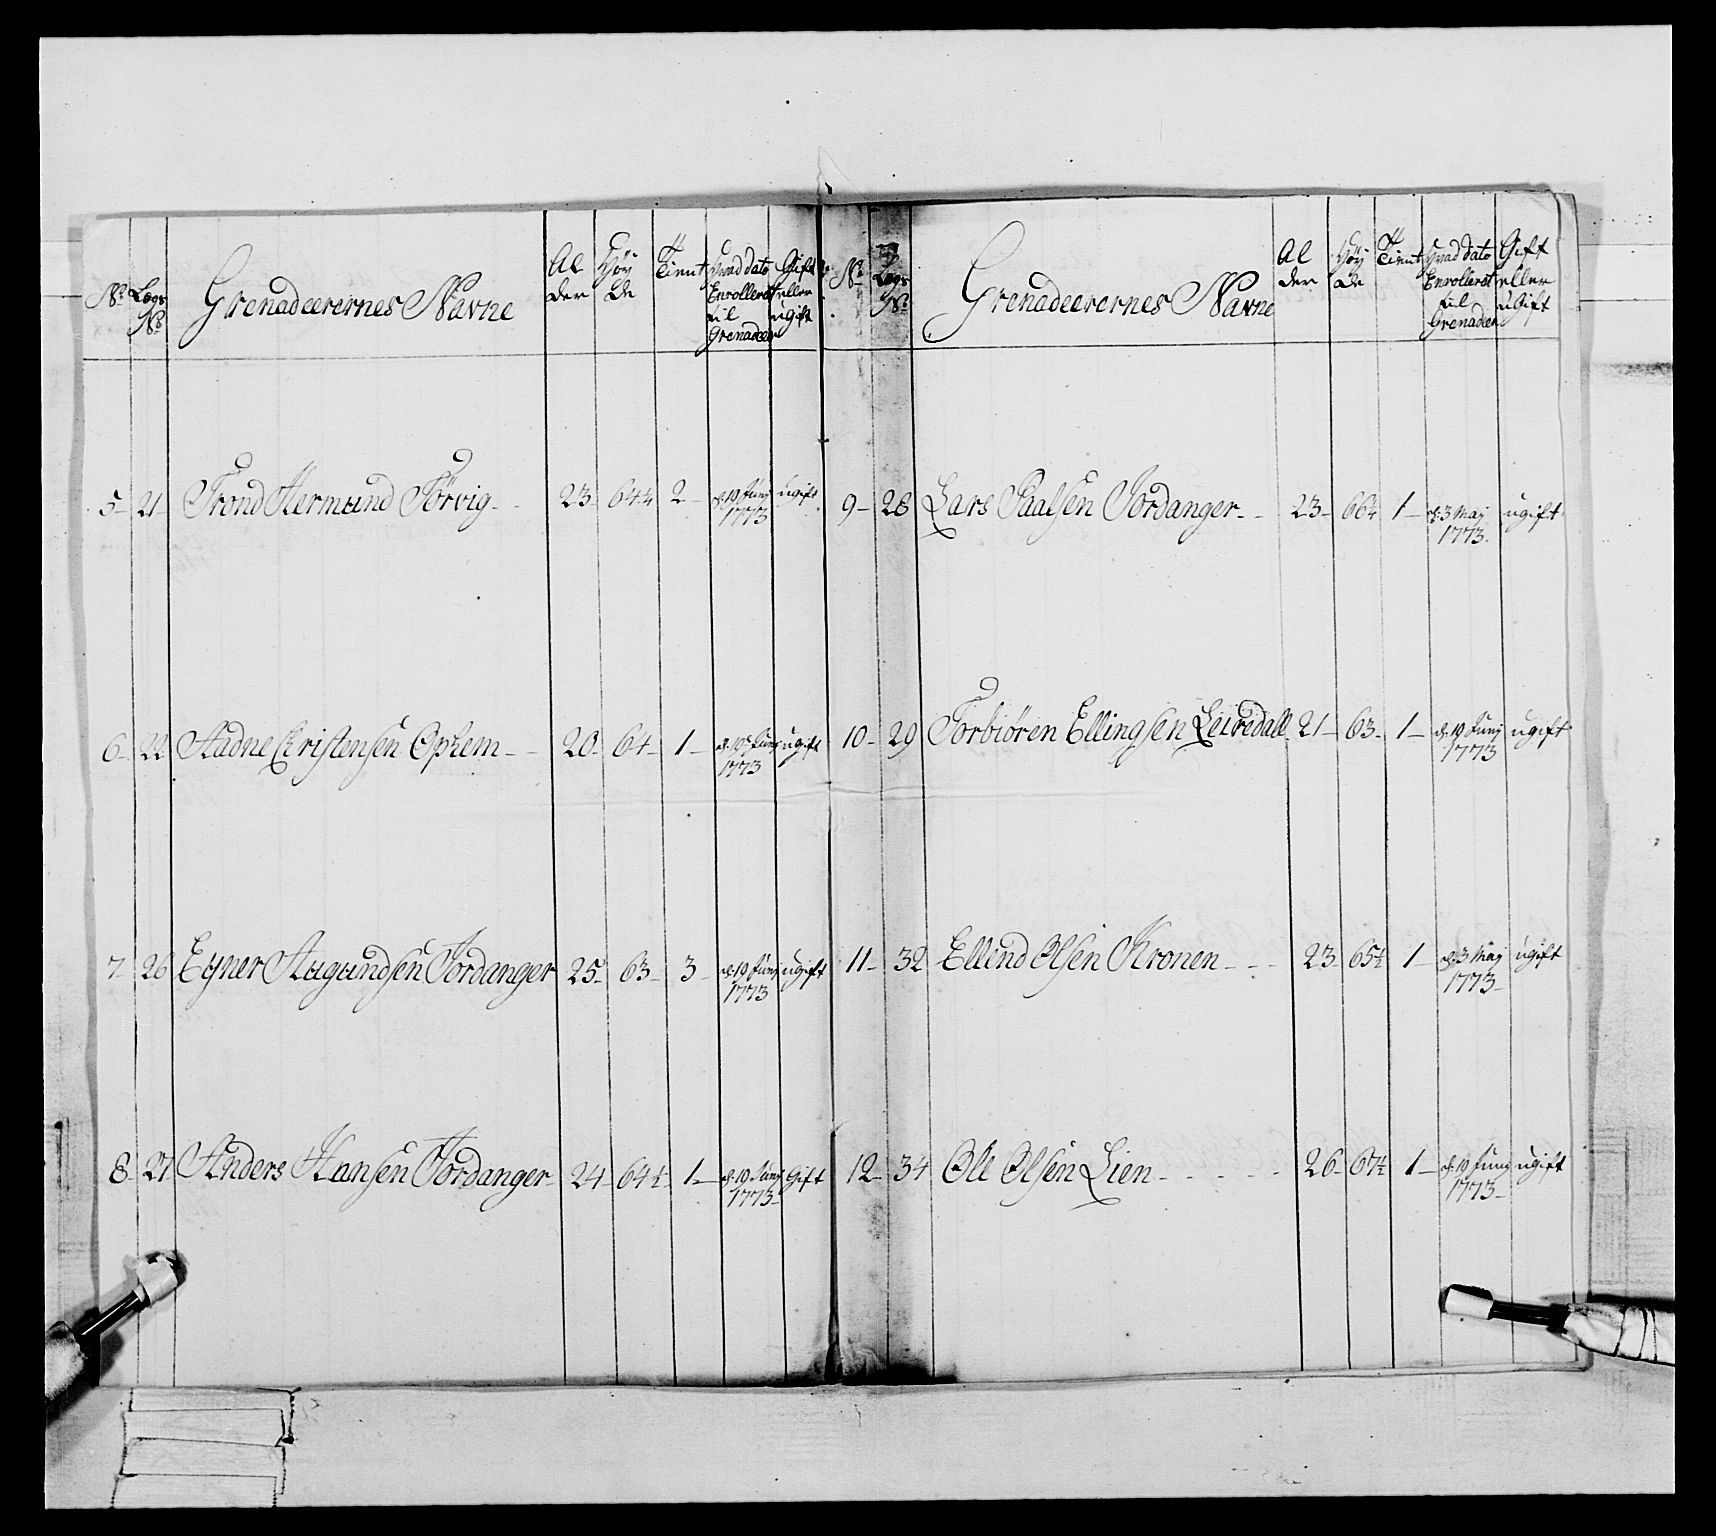 No Legs No Grenadeerernes Navne Al der Høy de Tient Hvad dato Enrolleret til Grenadeer Gift eller ugift
5- 21 Trond Hermund Törvig- 23- 64¼ 2- d: 19 Junj 1773 ugift
6- 22 Aadne Christensen Ophem- 20- 64- 1- d. 19 Junj 1773 ugift
7- 26 Eyner Augundsen Jordanger 25- 63- 3- d: 19 Junj 1773 ugift
8- 27 Anders Hansen Jordanger- 24 64½ 1- d. 19 Junj 1773- Gift
No Legs No Grenadeerernes Navne Al der Høy de Tient Hvad dato Enrolleret til Grenadeer Gift eller uGift
9- 28 Lars Paalsen Jordanger- 23- 66¼ 1- d: 3 Maj 1773. ugift
10- 29 Torbiören Ellingsen Leiredall 21- 63- 1- d. 19 Junj 1773 ugift
11- 32 Ellend Olsen Kronen- 23- 65½ 1- d: 3 Maj 1773- ugift
12- 34 Ole Olsen Lien- 26- 67½ 1- d: 19 Junj 1773- ugift